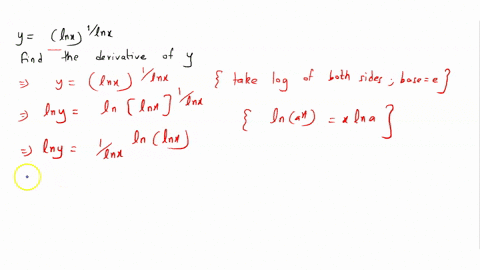 y = (lnx)^1/lnx
find the derivative of y
⇒ y = (lnx)^1/lnx { take log of both sides ; base = e }
⇒ lny = ln [lnx]^1/lnx { ln(a^x) = x ln a }
⇒ lny = 1/lnx ln (lnx)